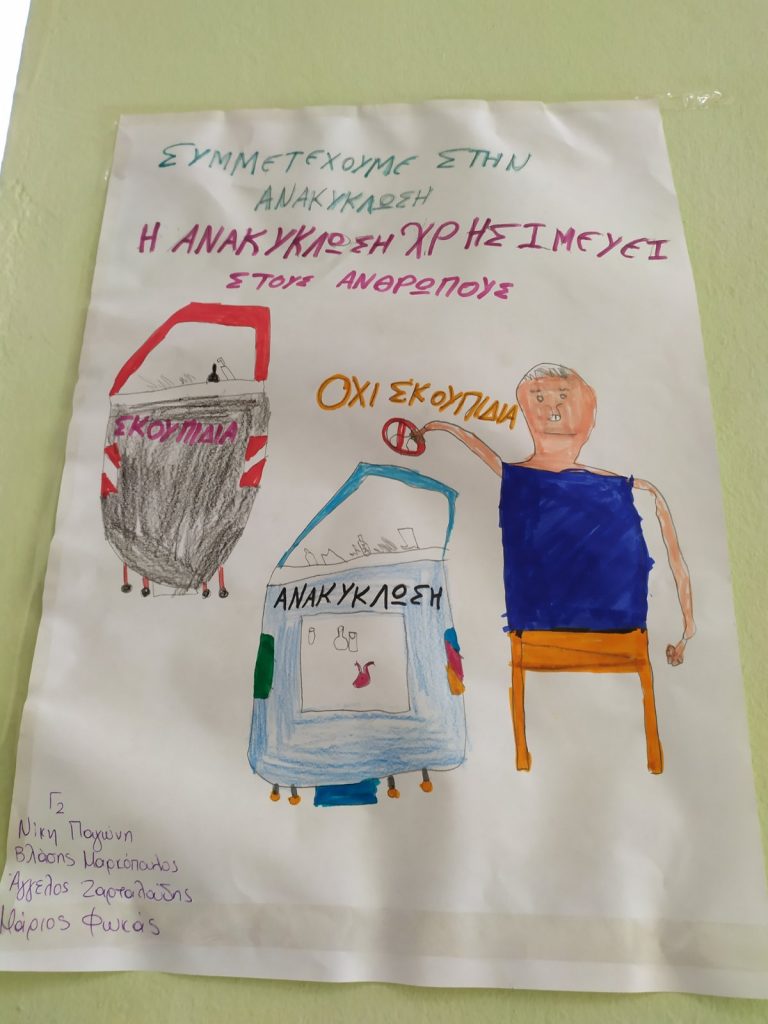 ΣΥΜΜΕΤΕΧΟΥΜΕ ΣΤΗΝ
ΑΝΑΚΥΚΛΩΣΗ
Η ΑΝΑΚΥΚΛΩΣΗ ΧΡΗΣΙΜΕΥΕΙ
ΣΤΟΥΣ ΑΝΘΡΩΠΟΥΣ
ΟΧΙ ΣΚΟΥΠΙΔΙΑ
ΣΚΟΥΠΙΔΙΑ
ΑΝΑΚΥΚΛΩΣΗ
Γ2
Νίκη Παγώνη
Βλάσης Μαρκόπουλος
Άγγελος Ζαρταλούδης
Μάριος Φωκάς